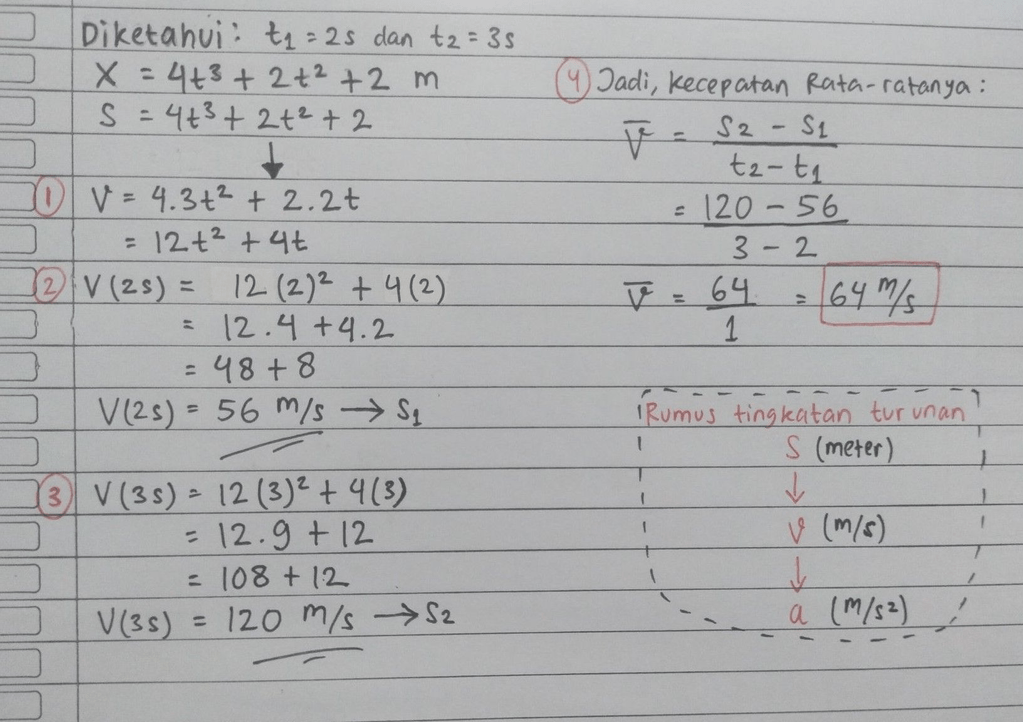 Diketahui: t₁ = 2s dan t₂ = 3s
X = 4t³ + 2t² + 2 m
S = 4t³ + 2t² + 2
↓
① V = 4.3t² + 2.2t
= 12t² + 4t
② V(2s) = 12(2)² + 4(2)
= 12.4 + 4.2
= 48 + 8
V(2s) = 56 m/s → S₁
③ V(3s) = 12(3)² + 4(3)
= 12.9 + 12
= 108 + 12
V(3s) = 120 m/s → S₂
④ Jadi, kecepatan Rata-ratanya:
V̅ = S₂ - S₁
t₂ - t₁
= 120 - 56
3 - 2
V̅ = 64 = 64 m/s
1
Rumus tingkatan turunan
S (meter)
↓
V (m/s)
↓
a (m/s²)